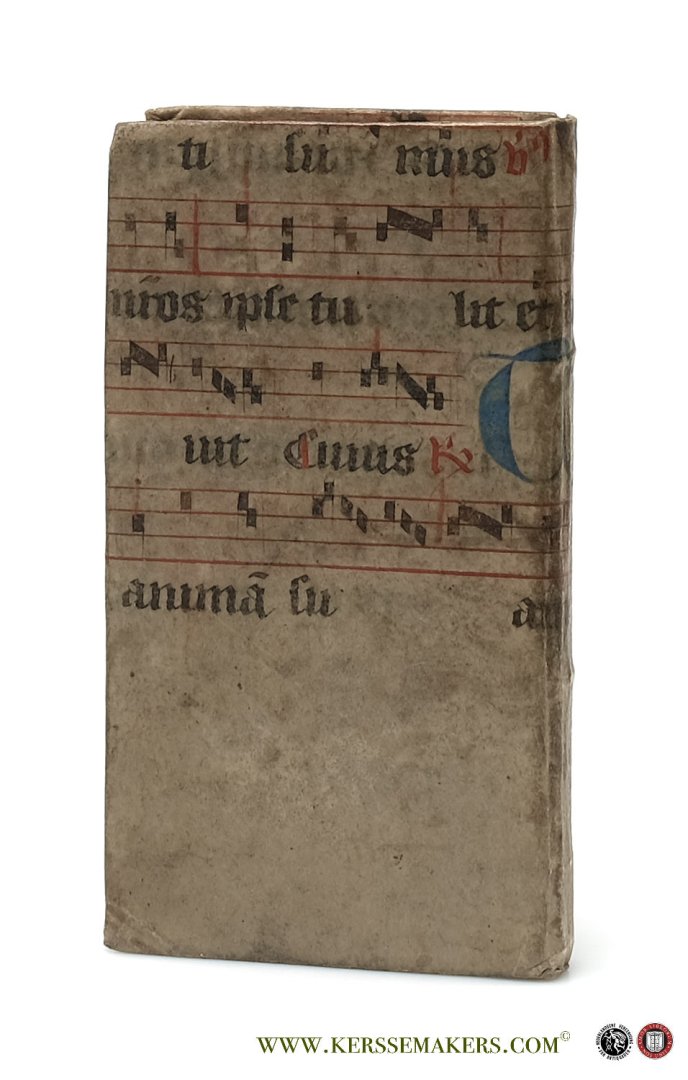 ti sū mus
nr̄os ipse tu lit et
uit Cuius
animā su
WWW.KERSSEMAKERS.COM©